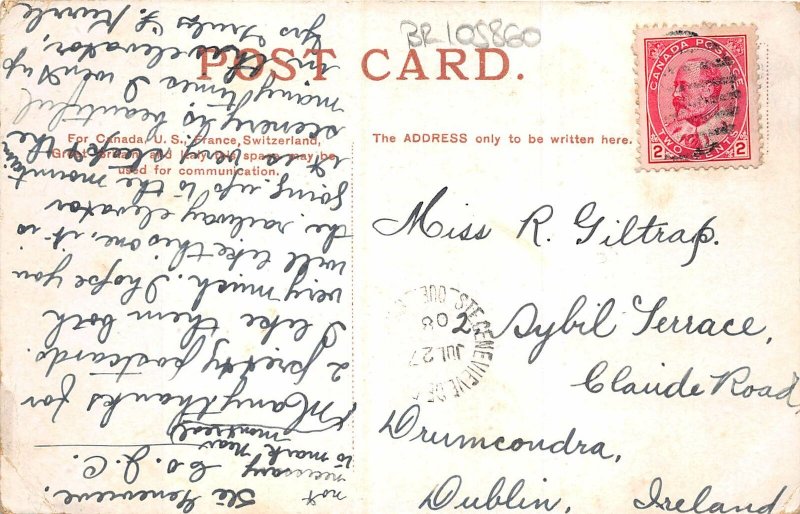 BR 105860
POST CARD.
CANADA POSTAGE
TWO CENTS
2 2
For Canada, U. S., France, Switzerland,
Great Britain and Italy this space may be
used for communication.
The ADDRESS only to be written here.
Miss R. Giltrap.
2, Sybil Terrace,
Claude Road,
Drumcondra,
Dublin, Ireland
STE GENEVIEVE DE
JUL 27
08
QUE
Ste Genevieve.
Co. J. C.
not
necessary
to mark near
Montreal
Many thanks for
2 pretty postcards.
I like them both
very much. I hope you
will like this one, it is
the railway elevator
going up to the mountain
the
scenery is beautiful
many times I went up
in this elevator,
Yrs truly F.